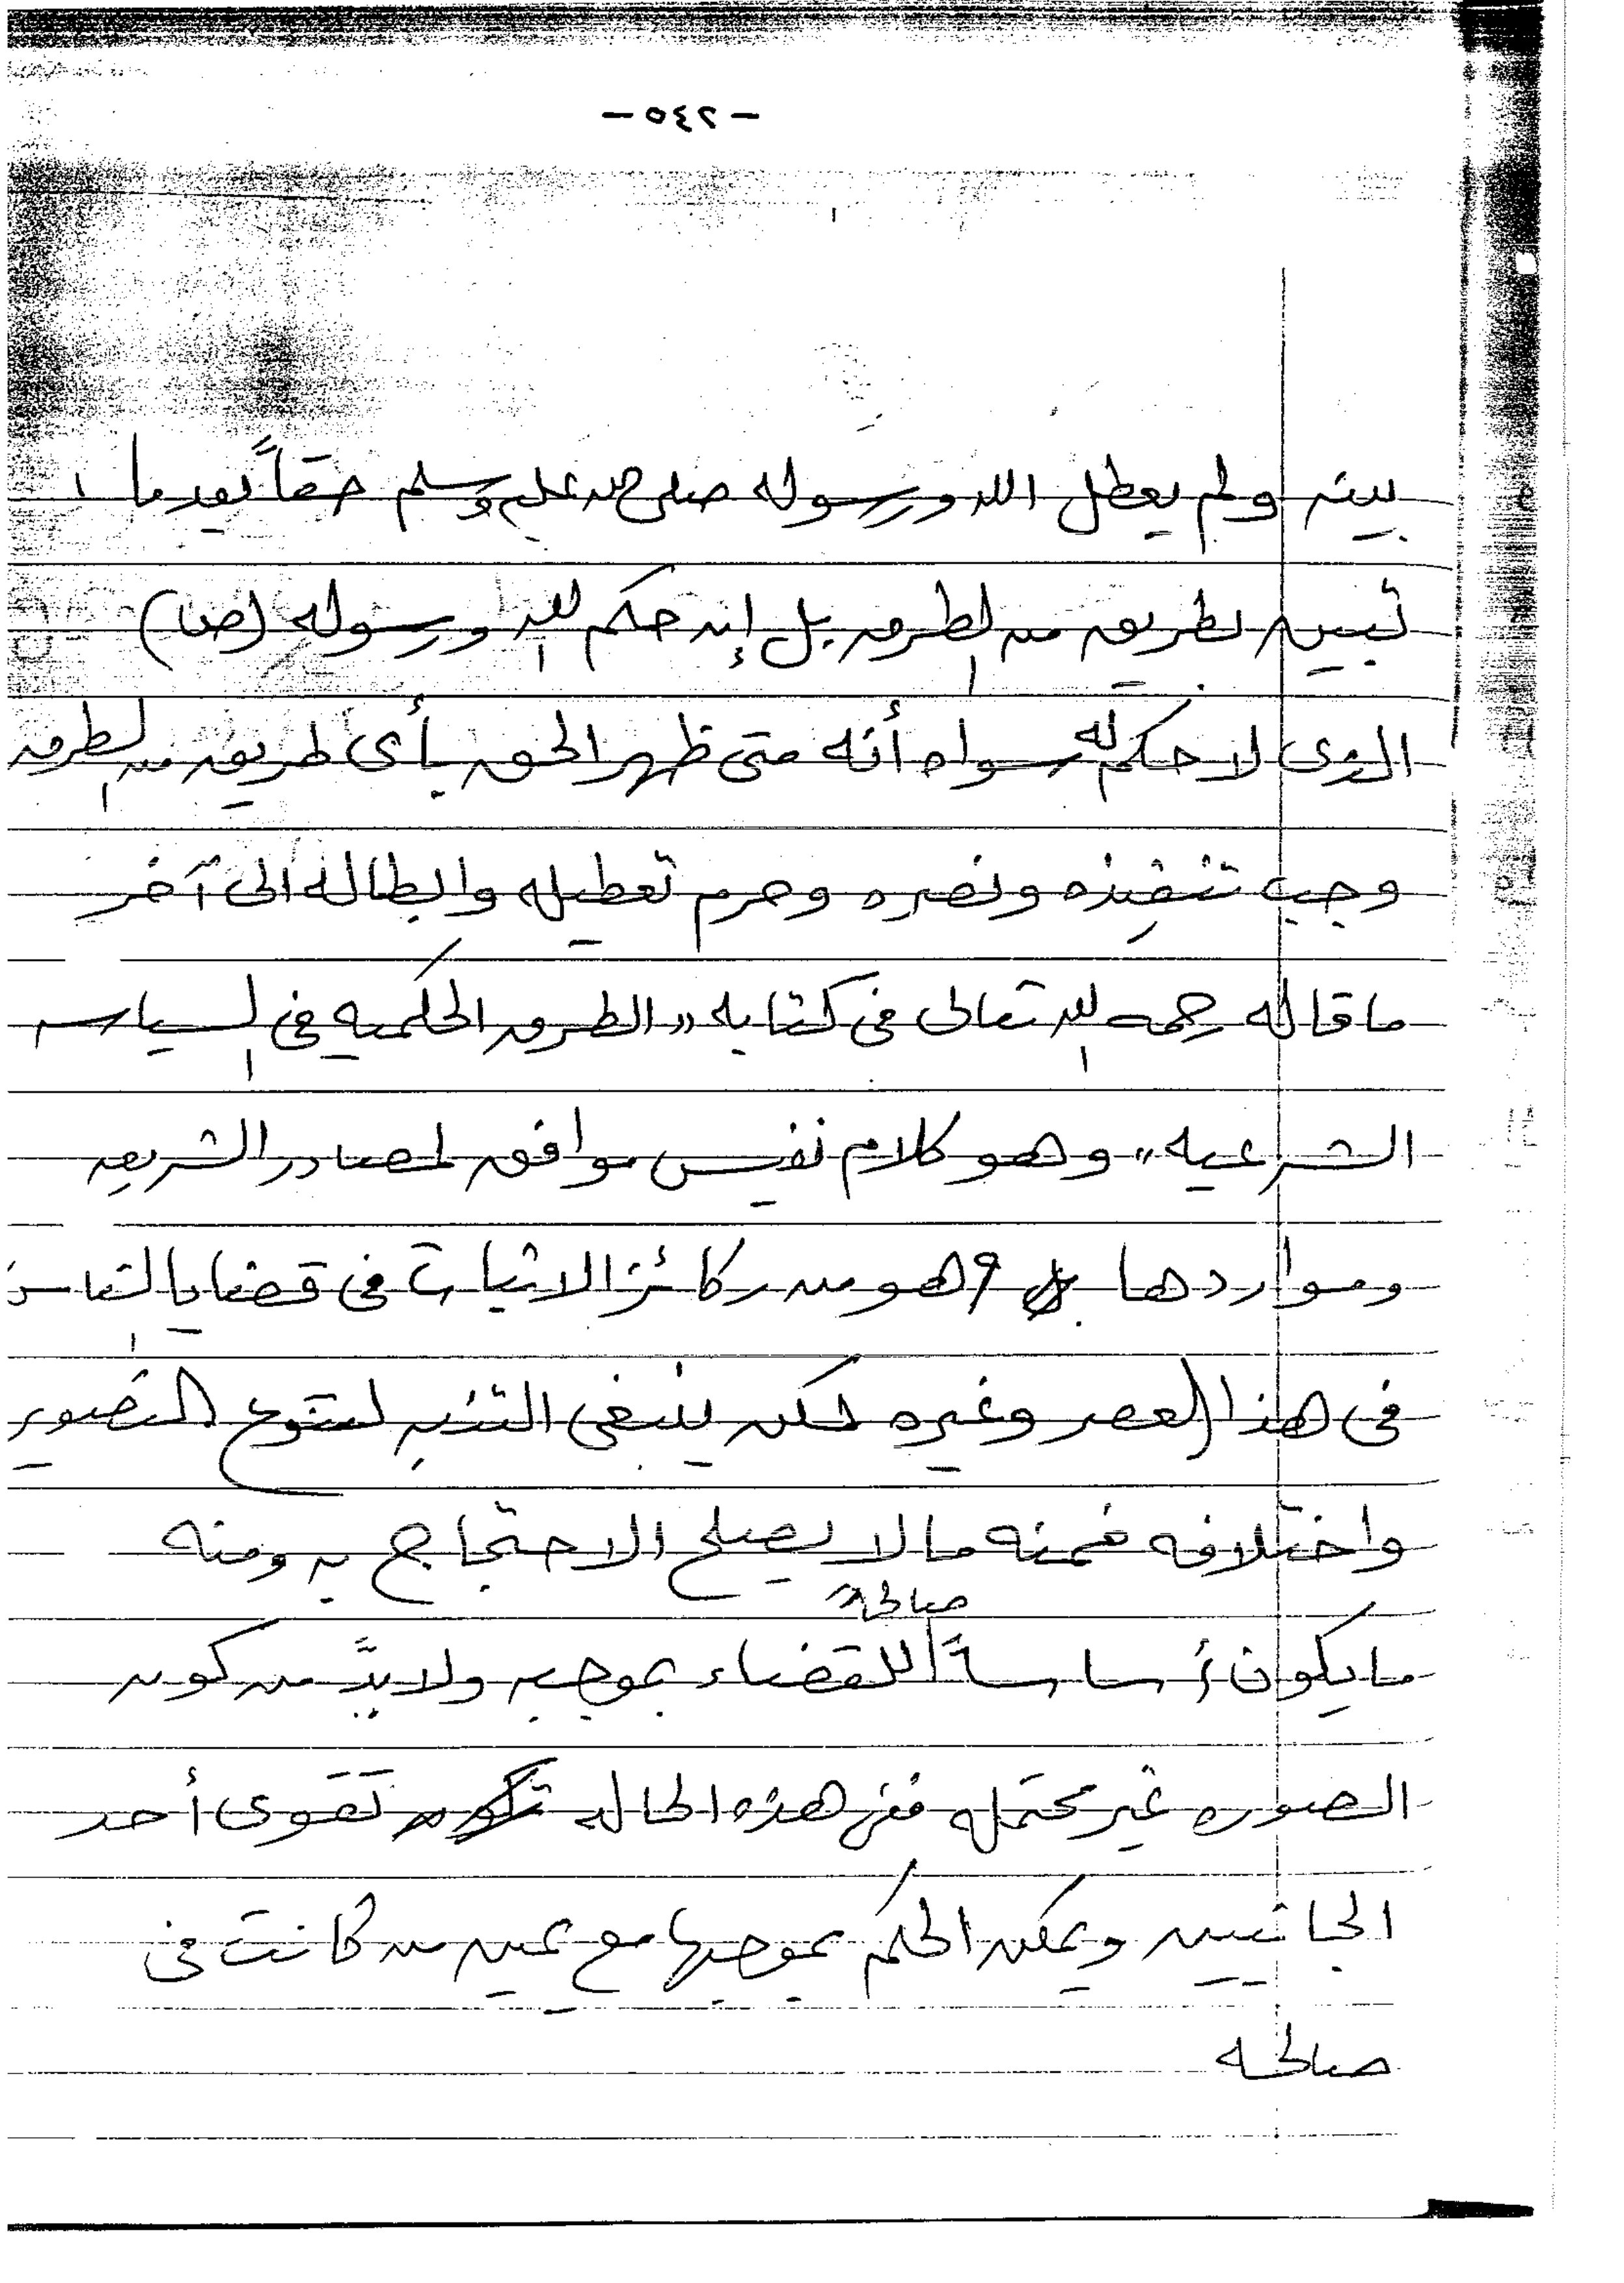 - ٢٤٥ -
بينه ولم يعطل الله ورسوله صلى الله عليه وسلم حقاً بعدما
تبين بطريق من الطرق بل إن حكم الله ورسوله (ص)
الذى لا حكم له سواه أنه متى ظهر الحق بأى طريق من الطرق
وجب تنفيذه ونصره وحرم تعطيله وابطاله الى آخر
ما قاله رحمه الله تعالى فى كتابه "الطرق الحكميه فى السياسه
الشرعيه" وهو كلام نفيس موافق لمصادر الشريعه
ومواردها وهو من ركائز الاثبات فى قضايا الناس
فى هذا العصر وغيره لكن ينبغى التنبه لتنوع التصوير
واختلافه فمنه ما لا يصلح الاحتجاج به ومنه
صالحة
ما يكون أساساً للقضاء بموجبه ولابدَّ من كون
الصوره غير محتمله ففى هذه الحاله تقوى أحد
الجانبين ويمكن الحكم بموجبها مع يمين من كانت فى
صالحه